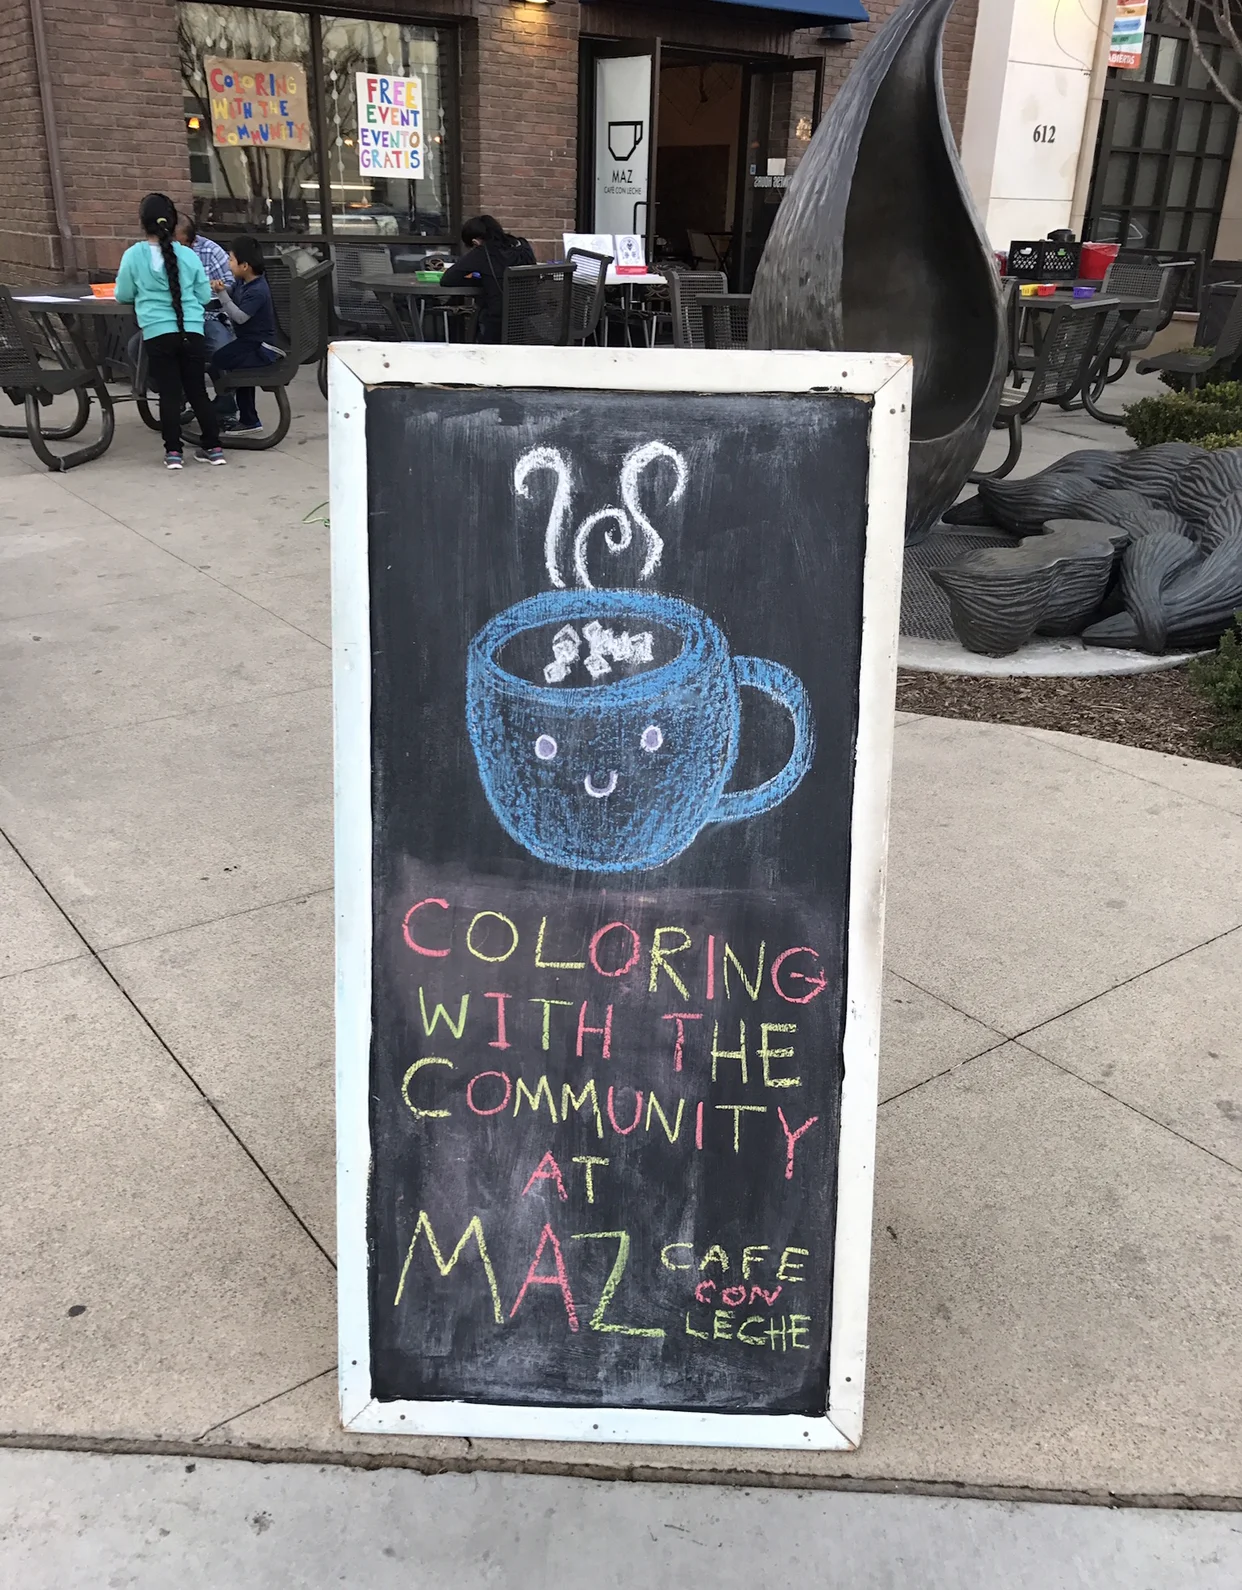 COLORING
WITH THE
COMMUNITY
FREE
EVENT
EVENTO
GRATIS
MAZ
CAFÉ CON LECHE
612
ABIERTOS
COLORING
WITH THE
COMMUNITY
AT
MAZ
CAFE
CON
LECHE